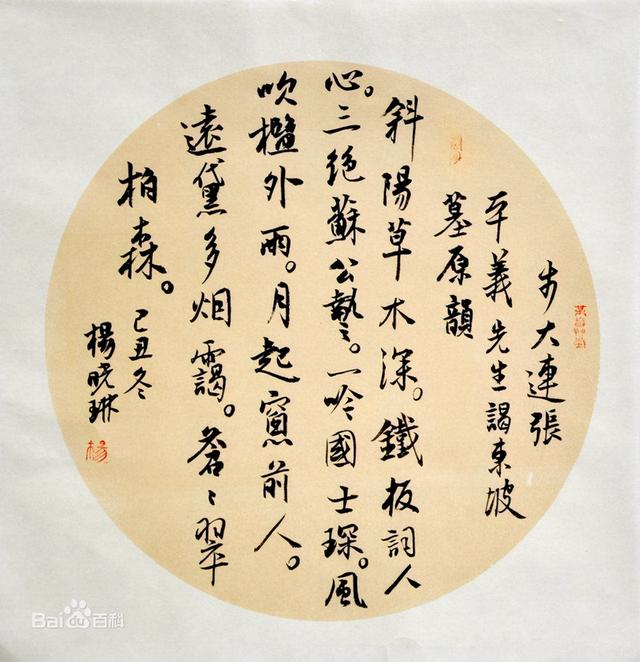 步大連張
平義先生謁東坡
墓原韻
斜陽草木深。鐵板詞人
心。三絕蘇公藝。一吟國士琛。風
吹檻外雨。月起窗前人。
遠黛多烟靄。蒼〻翠
柏森。己丑冬
楊曉琳
楊
Bai du 百科